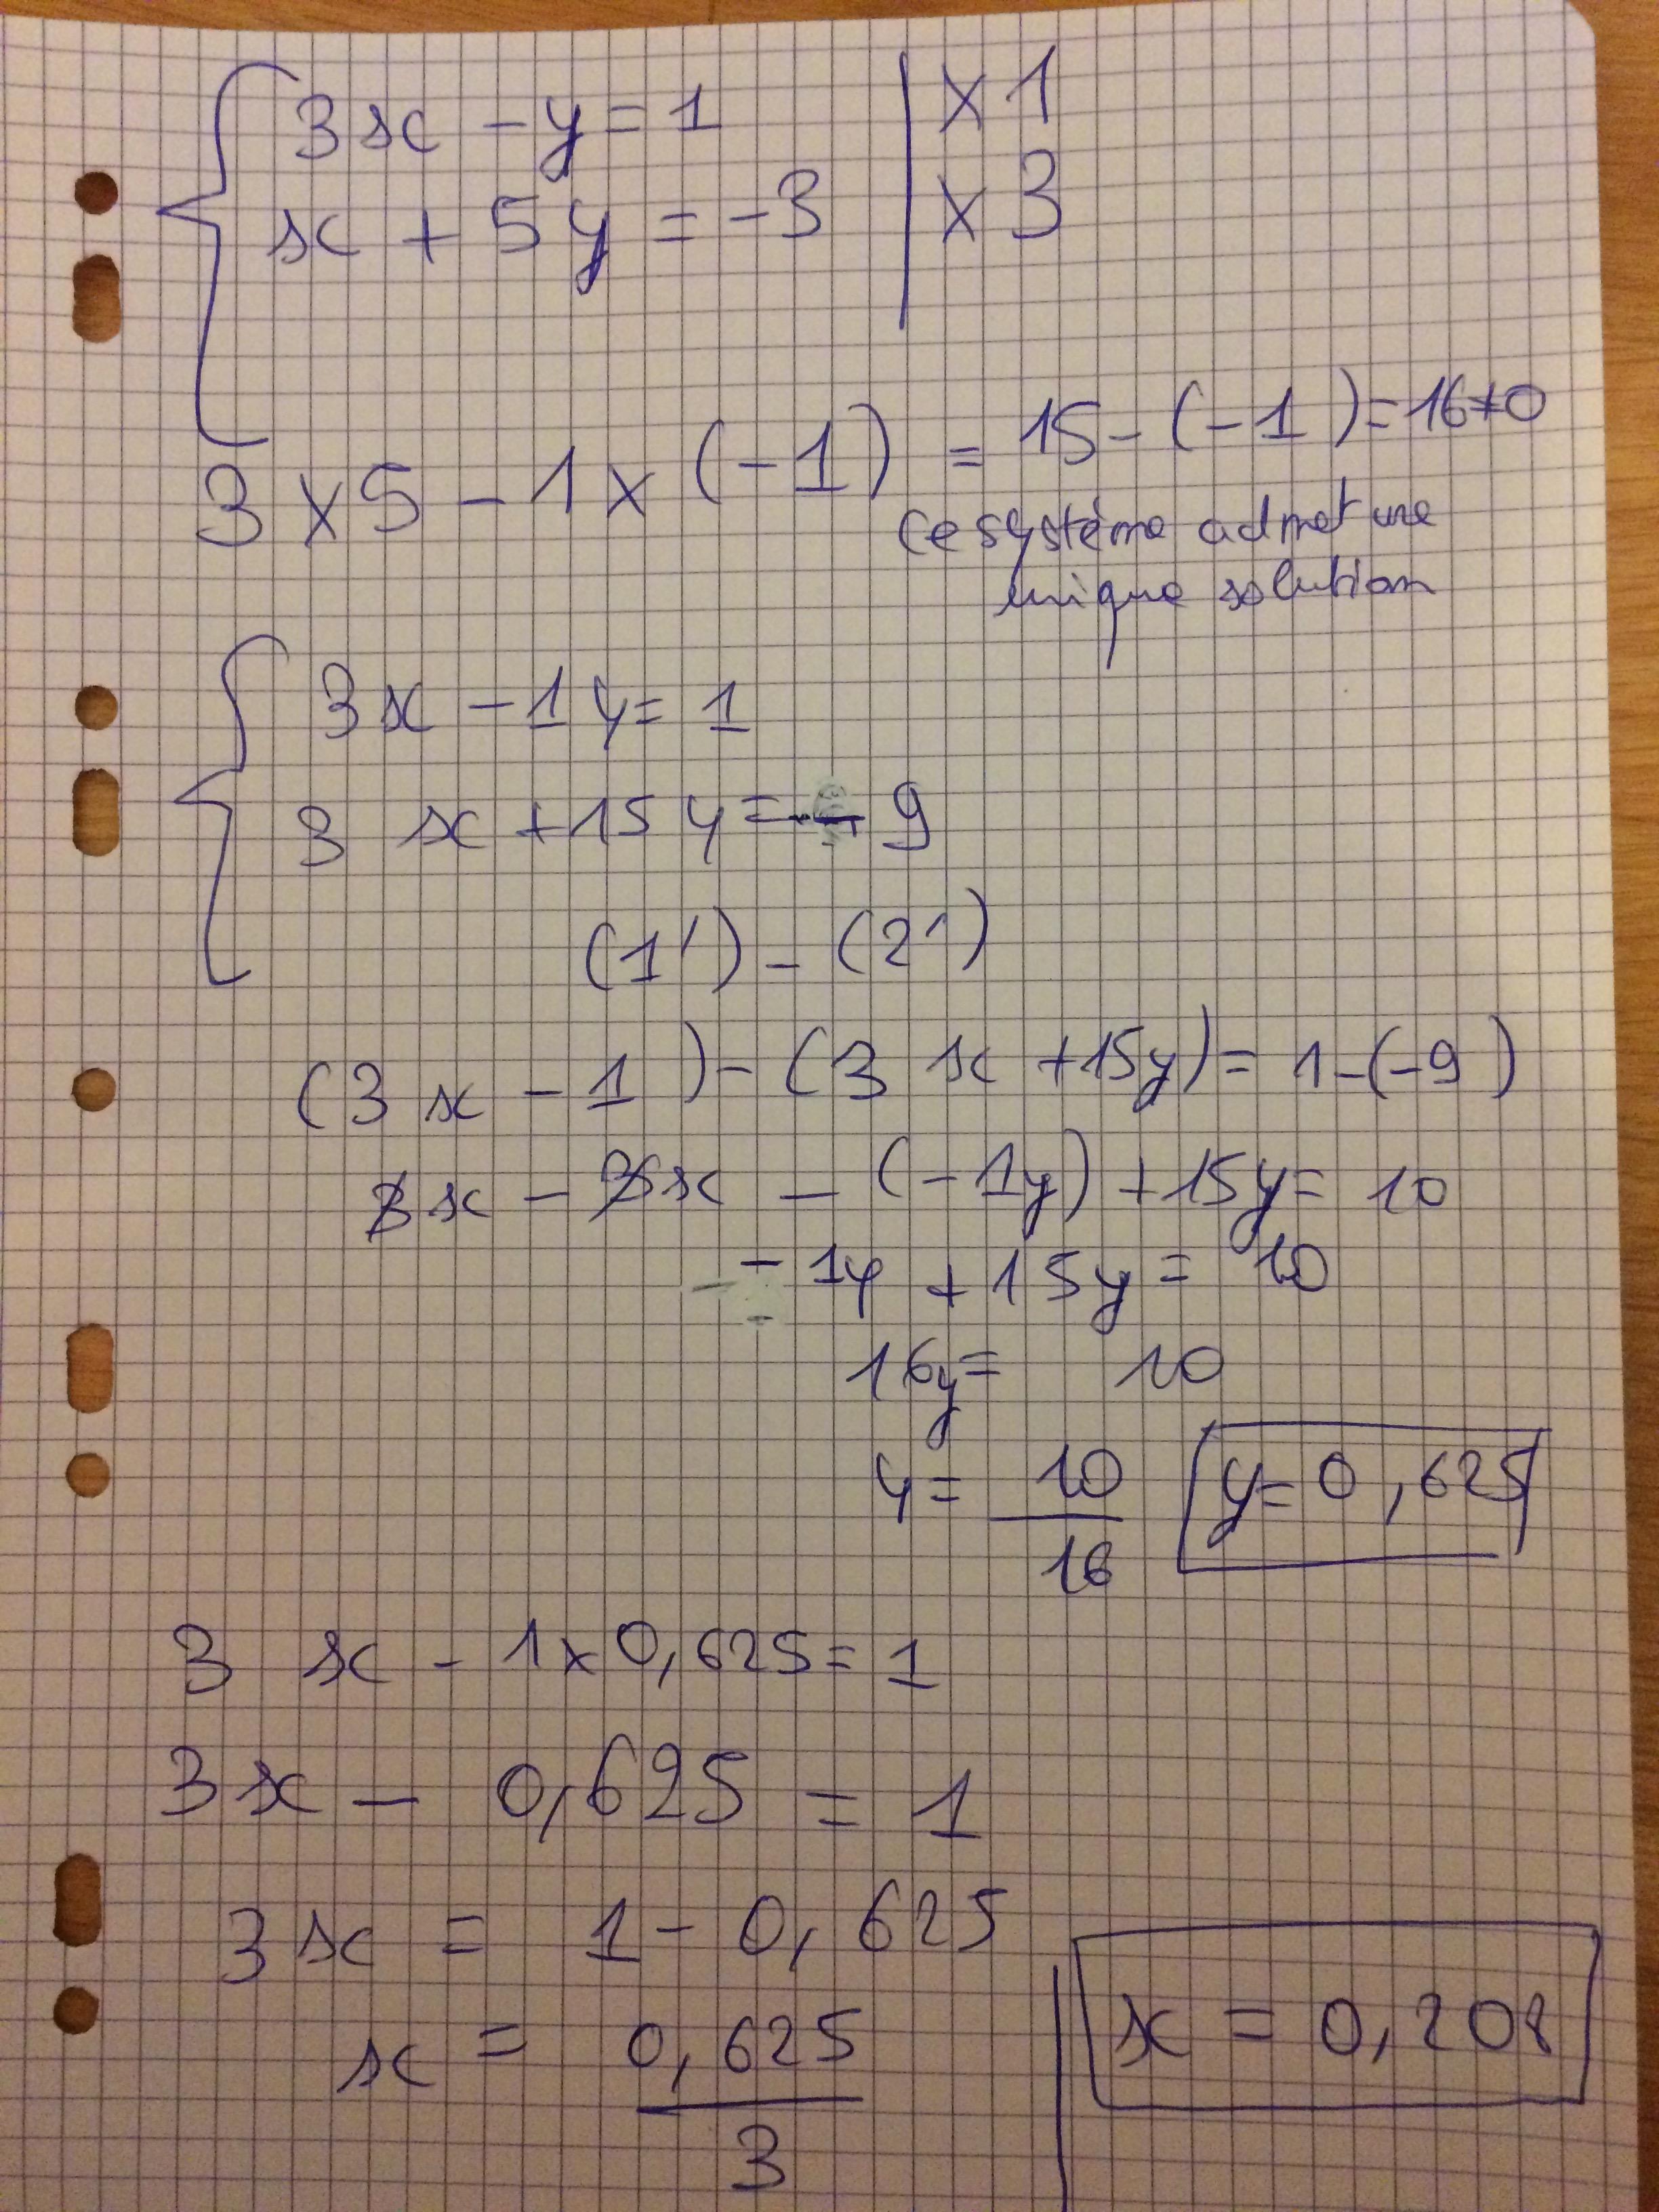 3x - y = 1 | × 1
x + 5y = -3 | × 3
3 × 5 - 1 × (-1) = 15 - (-1) = 16 ≠ 0
Ce système admet une
unique solution
3x - 1y = 1
3x + 15y = - 9
(1') - (2')
(3x - 1 ) - (3x + 15y) = 1 - (-9)
3x - 3x - (-1y) + 15y = 10
- 1y + 15y = 10
16y = 10
y = 10/16 y = 0,625
3x - 1 × 0,625 = 1
3x - 0,625 = 1
3x = 1 - 0,625
x = 0,625/3 | x = 0,208